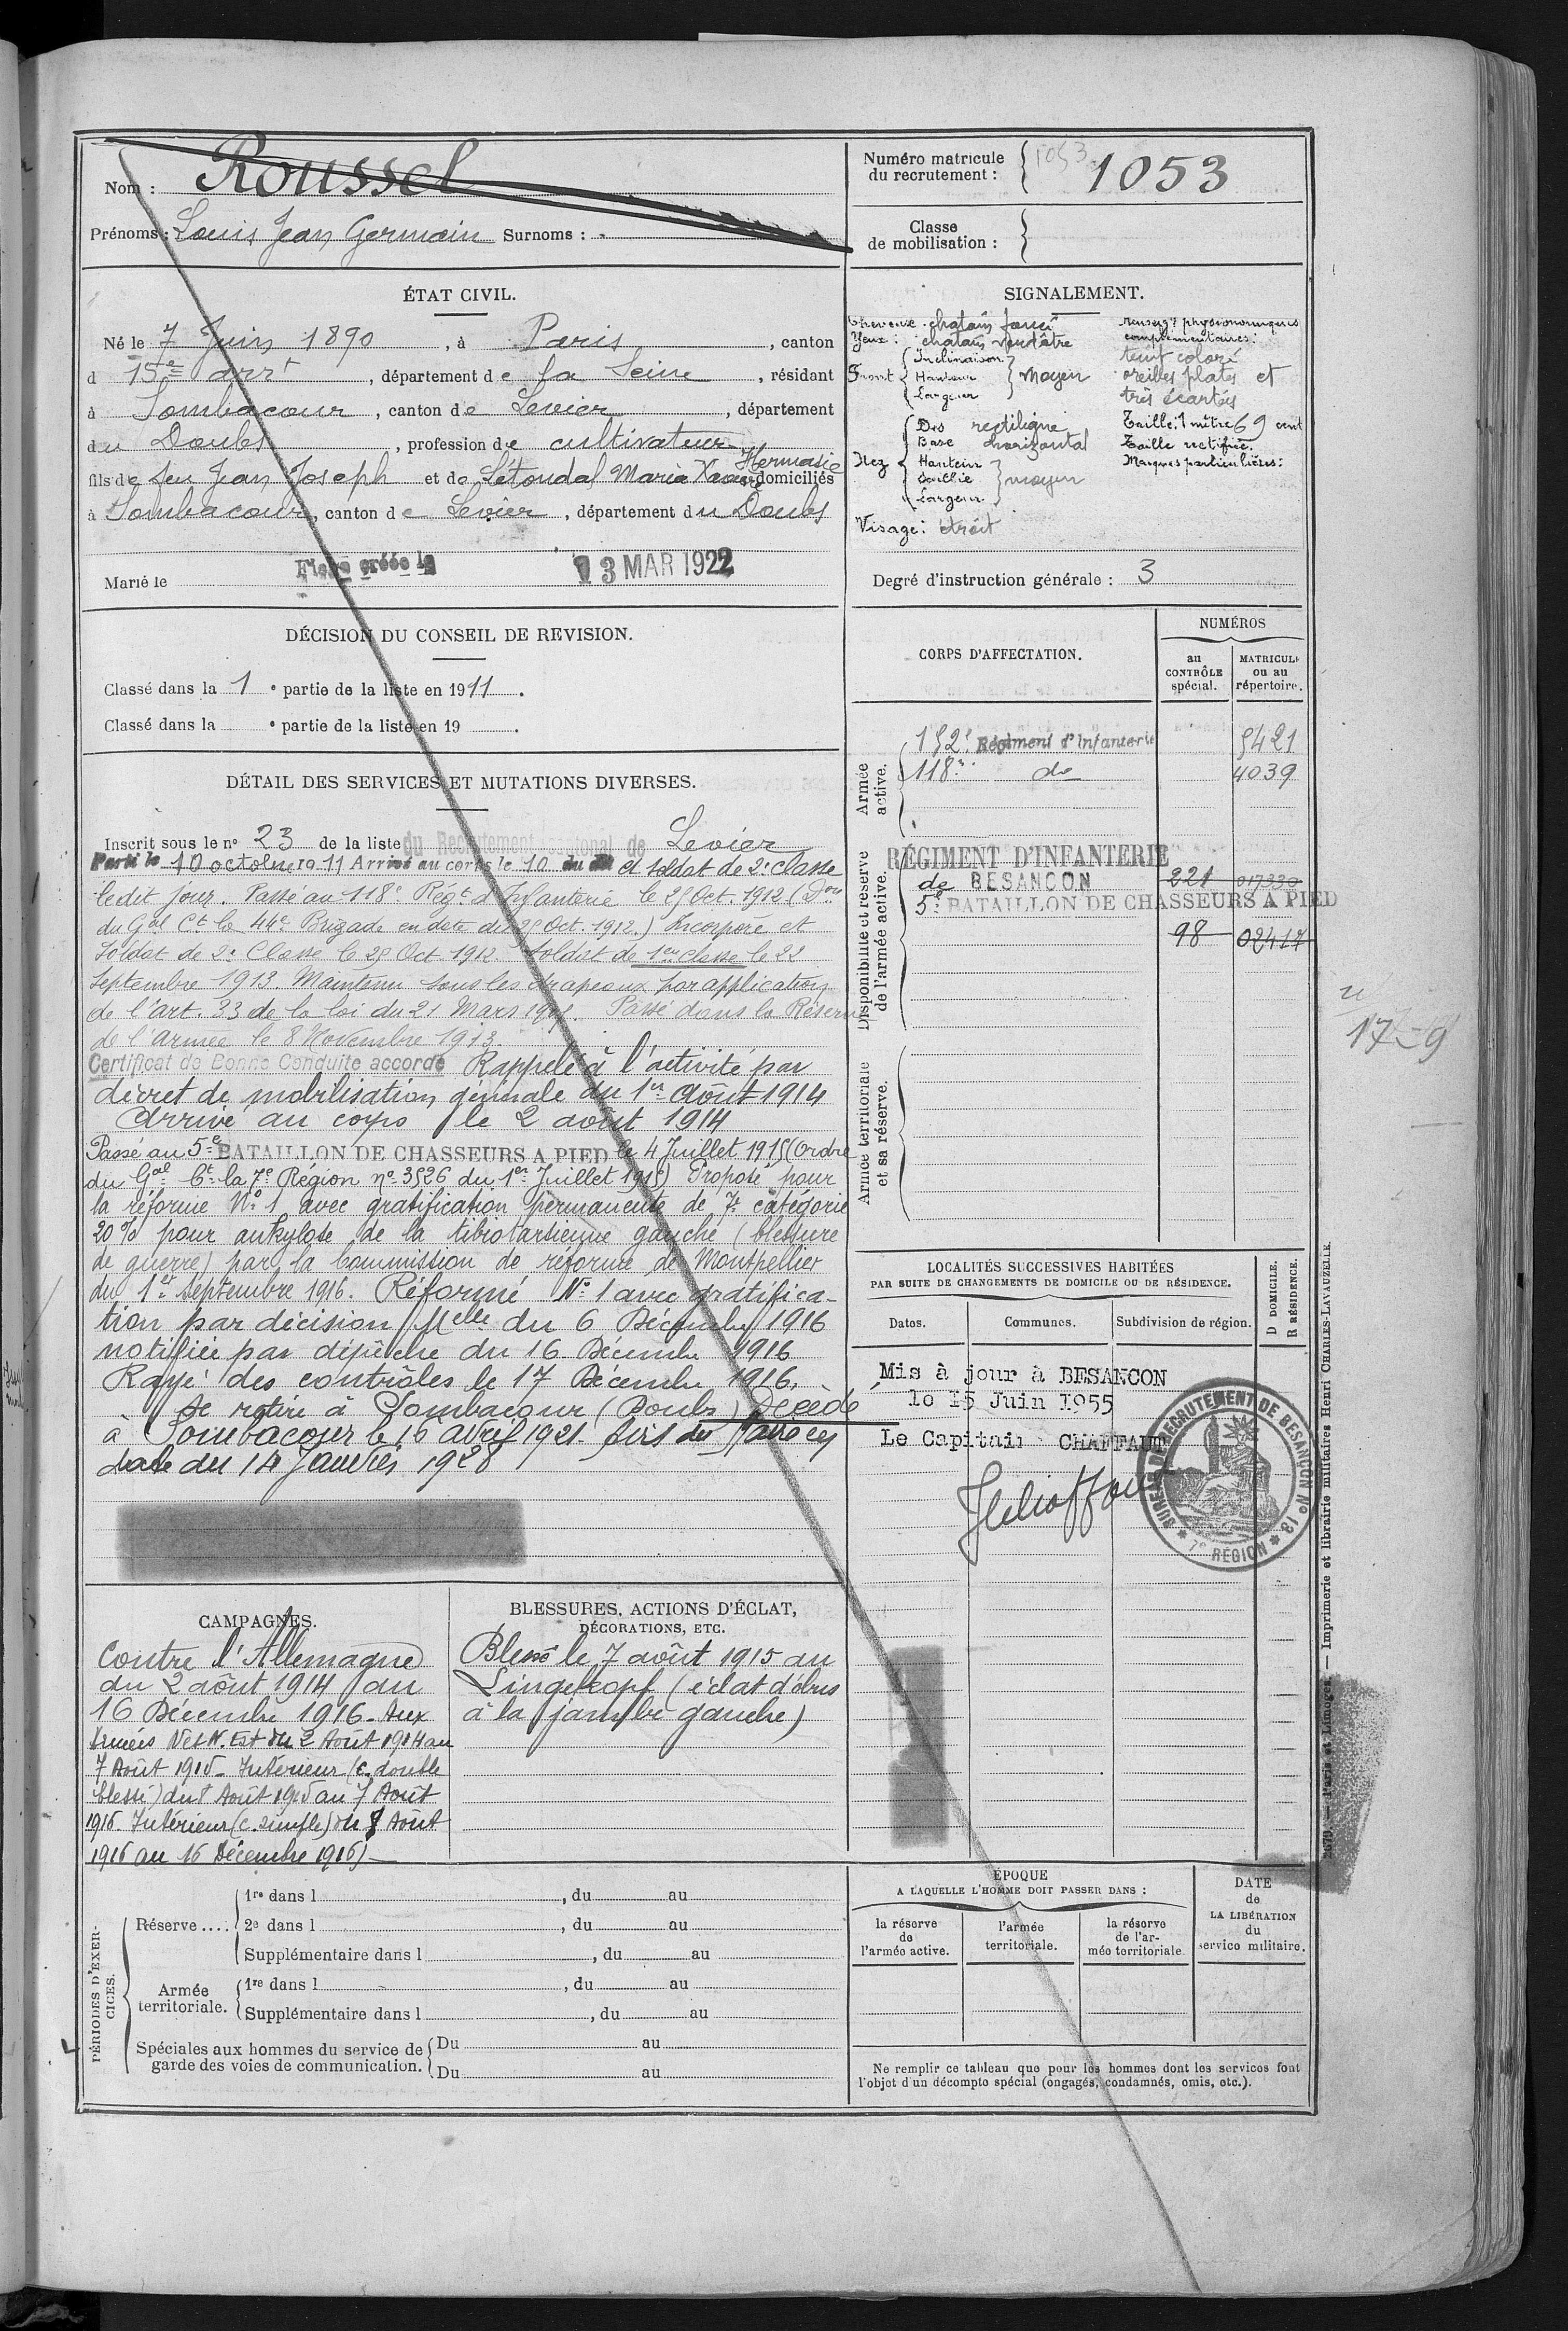 Nom : Roussel
Prénoms : Louis Jean Germain Surnoms :
Numéro matricule du recrutement : 1053 1053
Classe de mobilisation :
ÉTAT CIVIL.
Né le 7 Juin 1890, à Paris, canton
d 15e arrt, département de la Seine, résidant
à Sombacour, canton de Levier, département
du Doubs, profession de cultivateur
fils de feu Jean Joseph et de Létondal Maria Xavier Hermasie domiciliés
à Sombacour, canton de Levier, département du Doubs
Fiche créée le 13 MAR 1922
Marié le
SIGNALEMENT.
Cheveux : chatain foncé
Yeux : chatain verdâtre
Front { Inclinaison Hauteur Largeur } moyen
Nez { Dos rectiligne
Base horizontal
Hauteur Saillie Largeur } moyen
Visage : étroit
Renseigts physionomiques
complémentaires :
teint coloré
oreilles plates et
très écartées
Taille : 1 mètre 69 cent
Taille rectifiée :
Marques particulières :
Degré d'instruction générale : 3
DÉCISION DU CONSEIL DE REVISION.
Classé dans la 1e partie de la liste en 1911.
Classé dans la e partie de la liste en 19 .
DÉTAIL DES SERVICES ET MUTATIONS DIVERSES.
Inscrit sous le no 23 de la liste du Recrutement cantonal de Levier
Parti le 10 octobre 1911 Arrivé au corps le 10 du dit et soldat de 2e classe
ledit jour. Passé au 118e Régt d'Infanterie le 25 Oct. 1912 (Don
du Gal Ct la 44e Brigade en date du 25 Oct. 1912.) Incorporé et
Soldat de 2e Classe le 25 Oct 1912. Soldat de 1ere classe le 22
Septembre 1913. Maintenu sous les drapeaux par application
de l'art. 33 de la loi du 21 Mars 1905. Passé dans la Réserve
de l'armée le 8 Novembre 1913.
Certificat de Bonne Conduite accordé Rappelé à l'activité par
décret de mobilisation générale du 1er Août 1914
Arrivé au corps le 2 août 1914
Passé au 5e BATAILLON DE CHASSEURS A PIED le 4 Juillet 1915 (Ordre
du Gal Ct la 7e Région no 3526 du 1er Juillet 1915) Proposé pour
la réforme No 1 avec gratification permanente de 7e catégorie
20 % pour ankylose de la tibiotarsienne gauche (blessure
de guerre) par la Commission de réforme de Montpellier
du 1er Septembre 1916. Réformé No 1 avec gratifica-
tion par décision Melle du 6 Décembre 1916
notifiée par dépêche du 16 Décembre 1916
Rayé des contrôles le 17 Décembre 1916.
Se retire à Sombacour (Doubs) Décédé
à Sombacour le 16 avril 1921. Avis du
date du 14 Janvier 1928
CORPS D'AFFECTATION.
NUMÉROS
au CONTRÔLE spécial.
MATRICULE ou au répertoire.
Armée active.
152e Régiment d'Infanterie 5421
118e do 4039
Disponibilité et réserve de l'armée active.
RÉGIMENT D'INFANTERIE
de BESANCON 221 017330
5e BATAILLON DE CHASSEURS A PIED
98 02417
Armée territoriale et sa réserve.
LOCALITÉS SUCCESSIVES HABITÉES
PAR SUITE DE CHANGEMENTS DE DOMICILE OU DE RÉSIDENCE.
Dates. Communes. Subdivision de région. D DOMICILE. R RÉSIDENCE.
Mis à jour à BESANCON
le 15 Juin 1955
Le Capitain CHAFFAUT
BUREAU DE RECRUTEMENT DE BESANCON No 13
7e RÉGION
CAMPAGNES.
Contre l'Allemagne
du 2 août 1914 au
16 Décembre 1916. Aux
Armées N et N. Est du 2 Août 1914 au
7 Août 1915 - Intérieur (c. double
blessé) du 8 Août 1915 au 7 Août
1916. Intérieur (c. simple) du 8 Août
1916 au 16 Décembre 1916)
BLESSURES, ACTIONS D'ÉCLAT,
DÉCORATIONS, ETC.
Blessé le 7 août 1915 au
Lingekopf (éclat d'obus
à la jambe gauche)
PÉRIODES D'EXERCICES.
Réserve....
1re dans l , du au
2e dans l , du au
Supplémentaire dans l , du au
Armée territoriale.
1re dans l , du au
Supplémentaire dans l , du au
Spéciales aux hommes du service de garde des voies de communication.
Du au
Du au
ÉPOQUE
A LAQUELLE L'HOMME DOIT PASSER DANS :
la réserve de l'armée active.
l'armée territoriale.
la réserve de l'armée territoriale.
DATE de LA LIBÉRATION du service militaire.
Ne remplir ce tableau que pour les hommes dont les services font
l'objet d'un décompte spécial (engagés, condamnés, omis, etc.).
Paris et Limoges. — Imprimerie et librairie militaires Henri CHARLES-LAVAUZELLE.